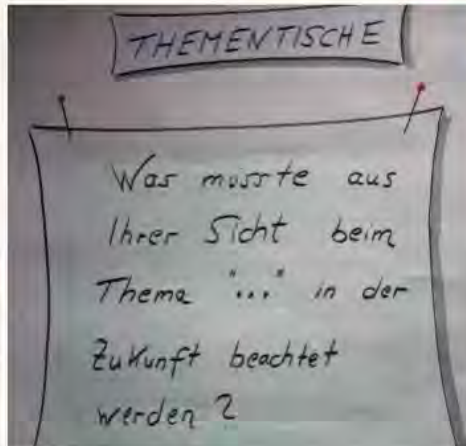 THEMENTISCHE
Was müsste aus
Ihrer Sicht beim
Thema "..." in der
Zukunft beachtet
werden?